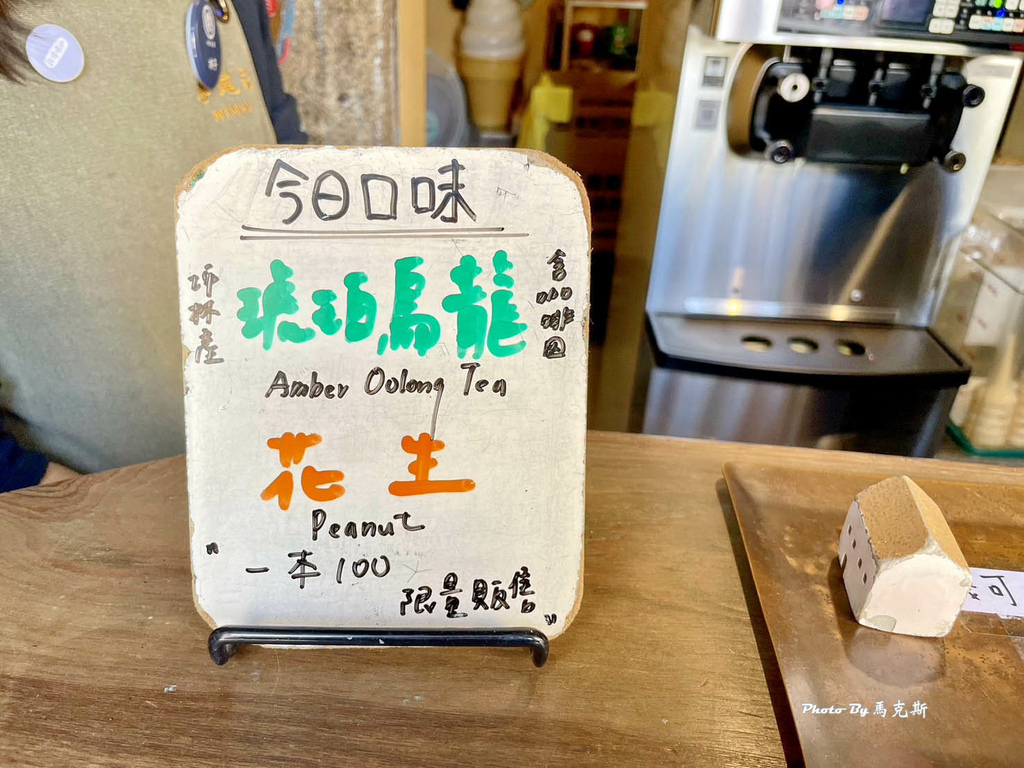 今日口味
坪林產
琥珀烏龍
含咖啡因
Amber Oolong Tea
花生
Peanut
一本100
"限量販售"
可
Photo By 馬克斯